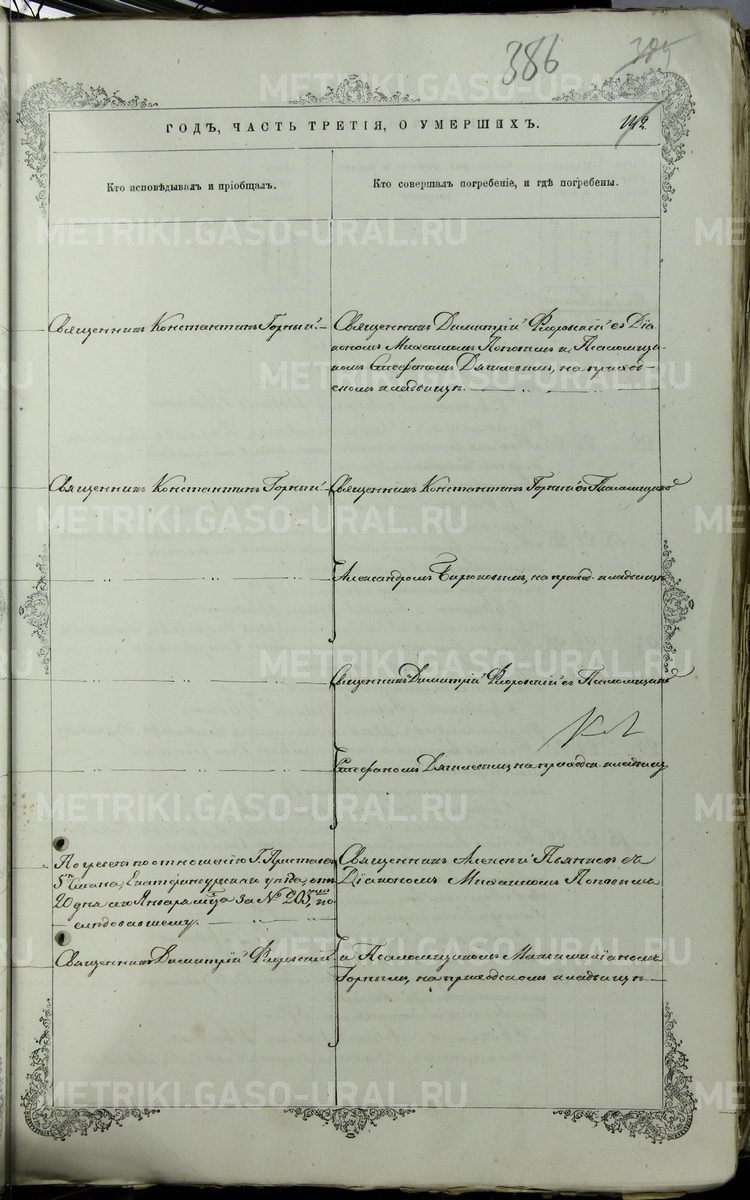 386
385
ГОДЪ, ЧАСТЬ ТРЕТІЯ, О УМЕРШИХЪ.
142
Кто исповѣдывалъ и пріобщалъ.
Кто совершалъ погребеніе, и гдѣ погребены.
Священникъ Константинъ Горный.
Священникъ Димитрій Флоровскій съ Діа-
кономъ Михаиломъ Поповымъ и Псаломщи-
комъ Стефаномъ Дягилевымъ, на приход-
скомъ кладбищѣ.
Священникъ Константинъ Горный
Священникъ Константинъ Горный съ Псаломщикомъ
Александромъ Бирюковымъ, на приход. кладбищѣ
Священникъ Димитрій Флоровскій съ Псаломщикомъ
Стефаномъ Дягилевымъ, на приходск. кладбищ.
Погребенъ по отношенію Г. Пристава
5го Стана, Екатеринбургскаго уѣзда, отъ
20 дня сего Января м‑ца за № 203, по-
слѣдовавшему.
Священникъ Алексій Пьянковъ съ
Діакономъ Михаиломъ Поповымъ
Священникъ Димитрій Флоровскій
и Псаломщикомъ Максимиліаномъ
Горнымъ, на приходскомъ кладбищѣ
METRIKI.GASO-URAL.RU